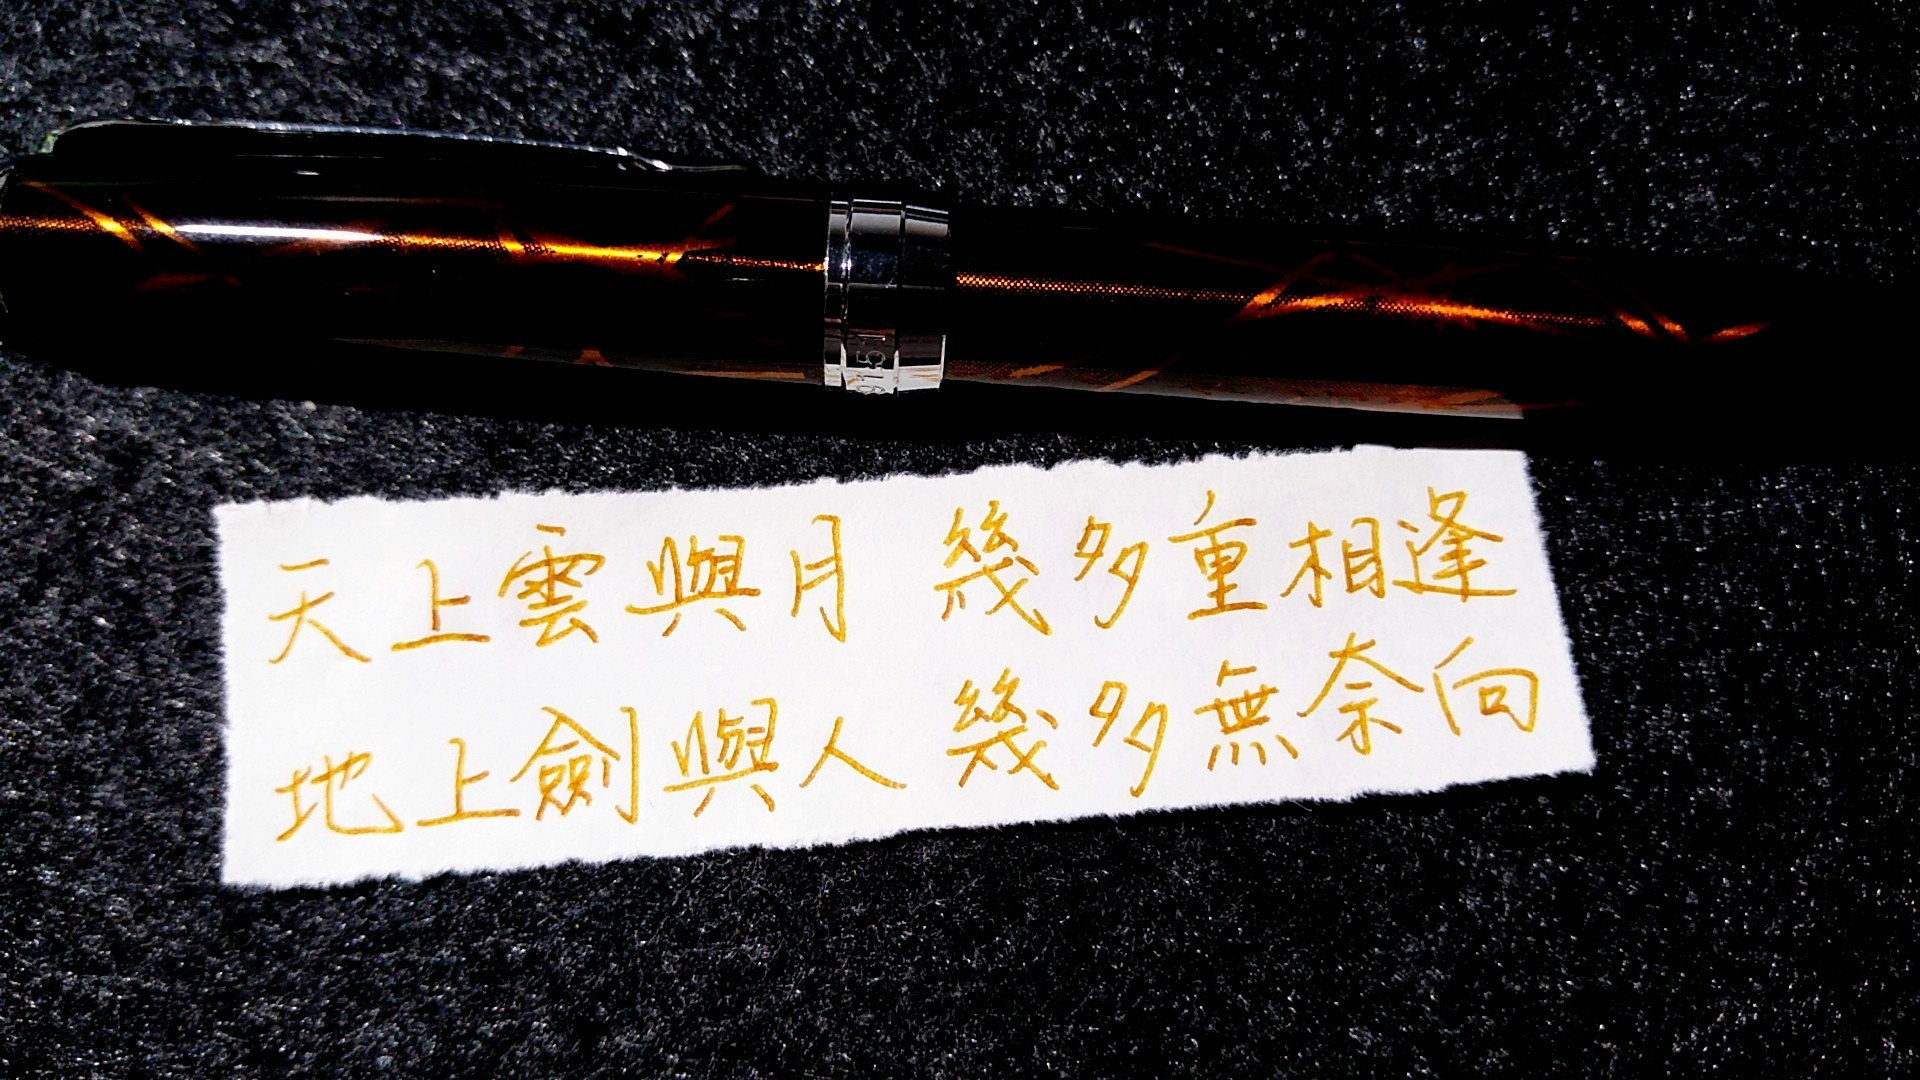 天上雲與月 幾多重相逢
地上劍與人 幾多無奈向